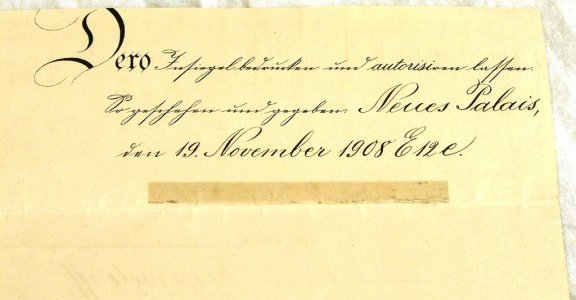 Dero Insiegel bedrucken und autorisiren lassen.
So geschehen und gegeben. Neues Palais,
den 19. November 1908